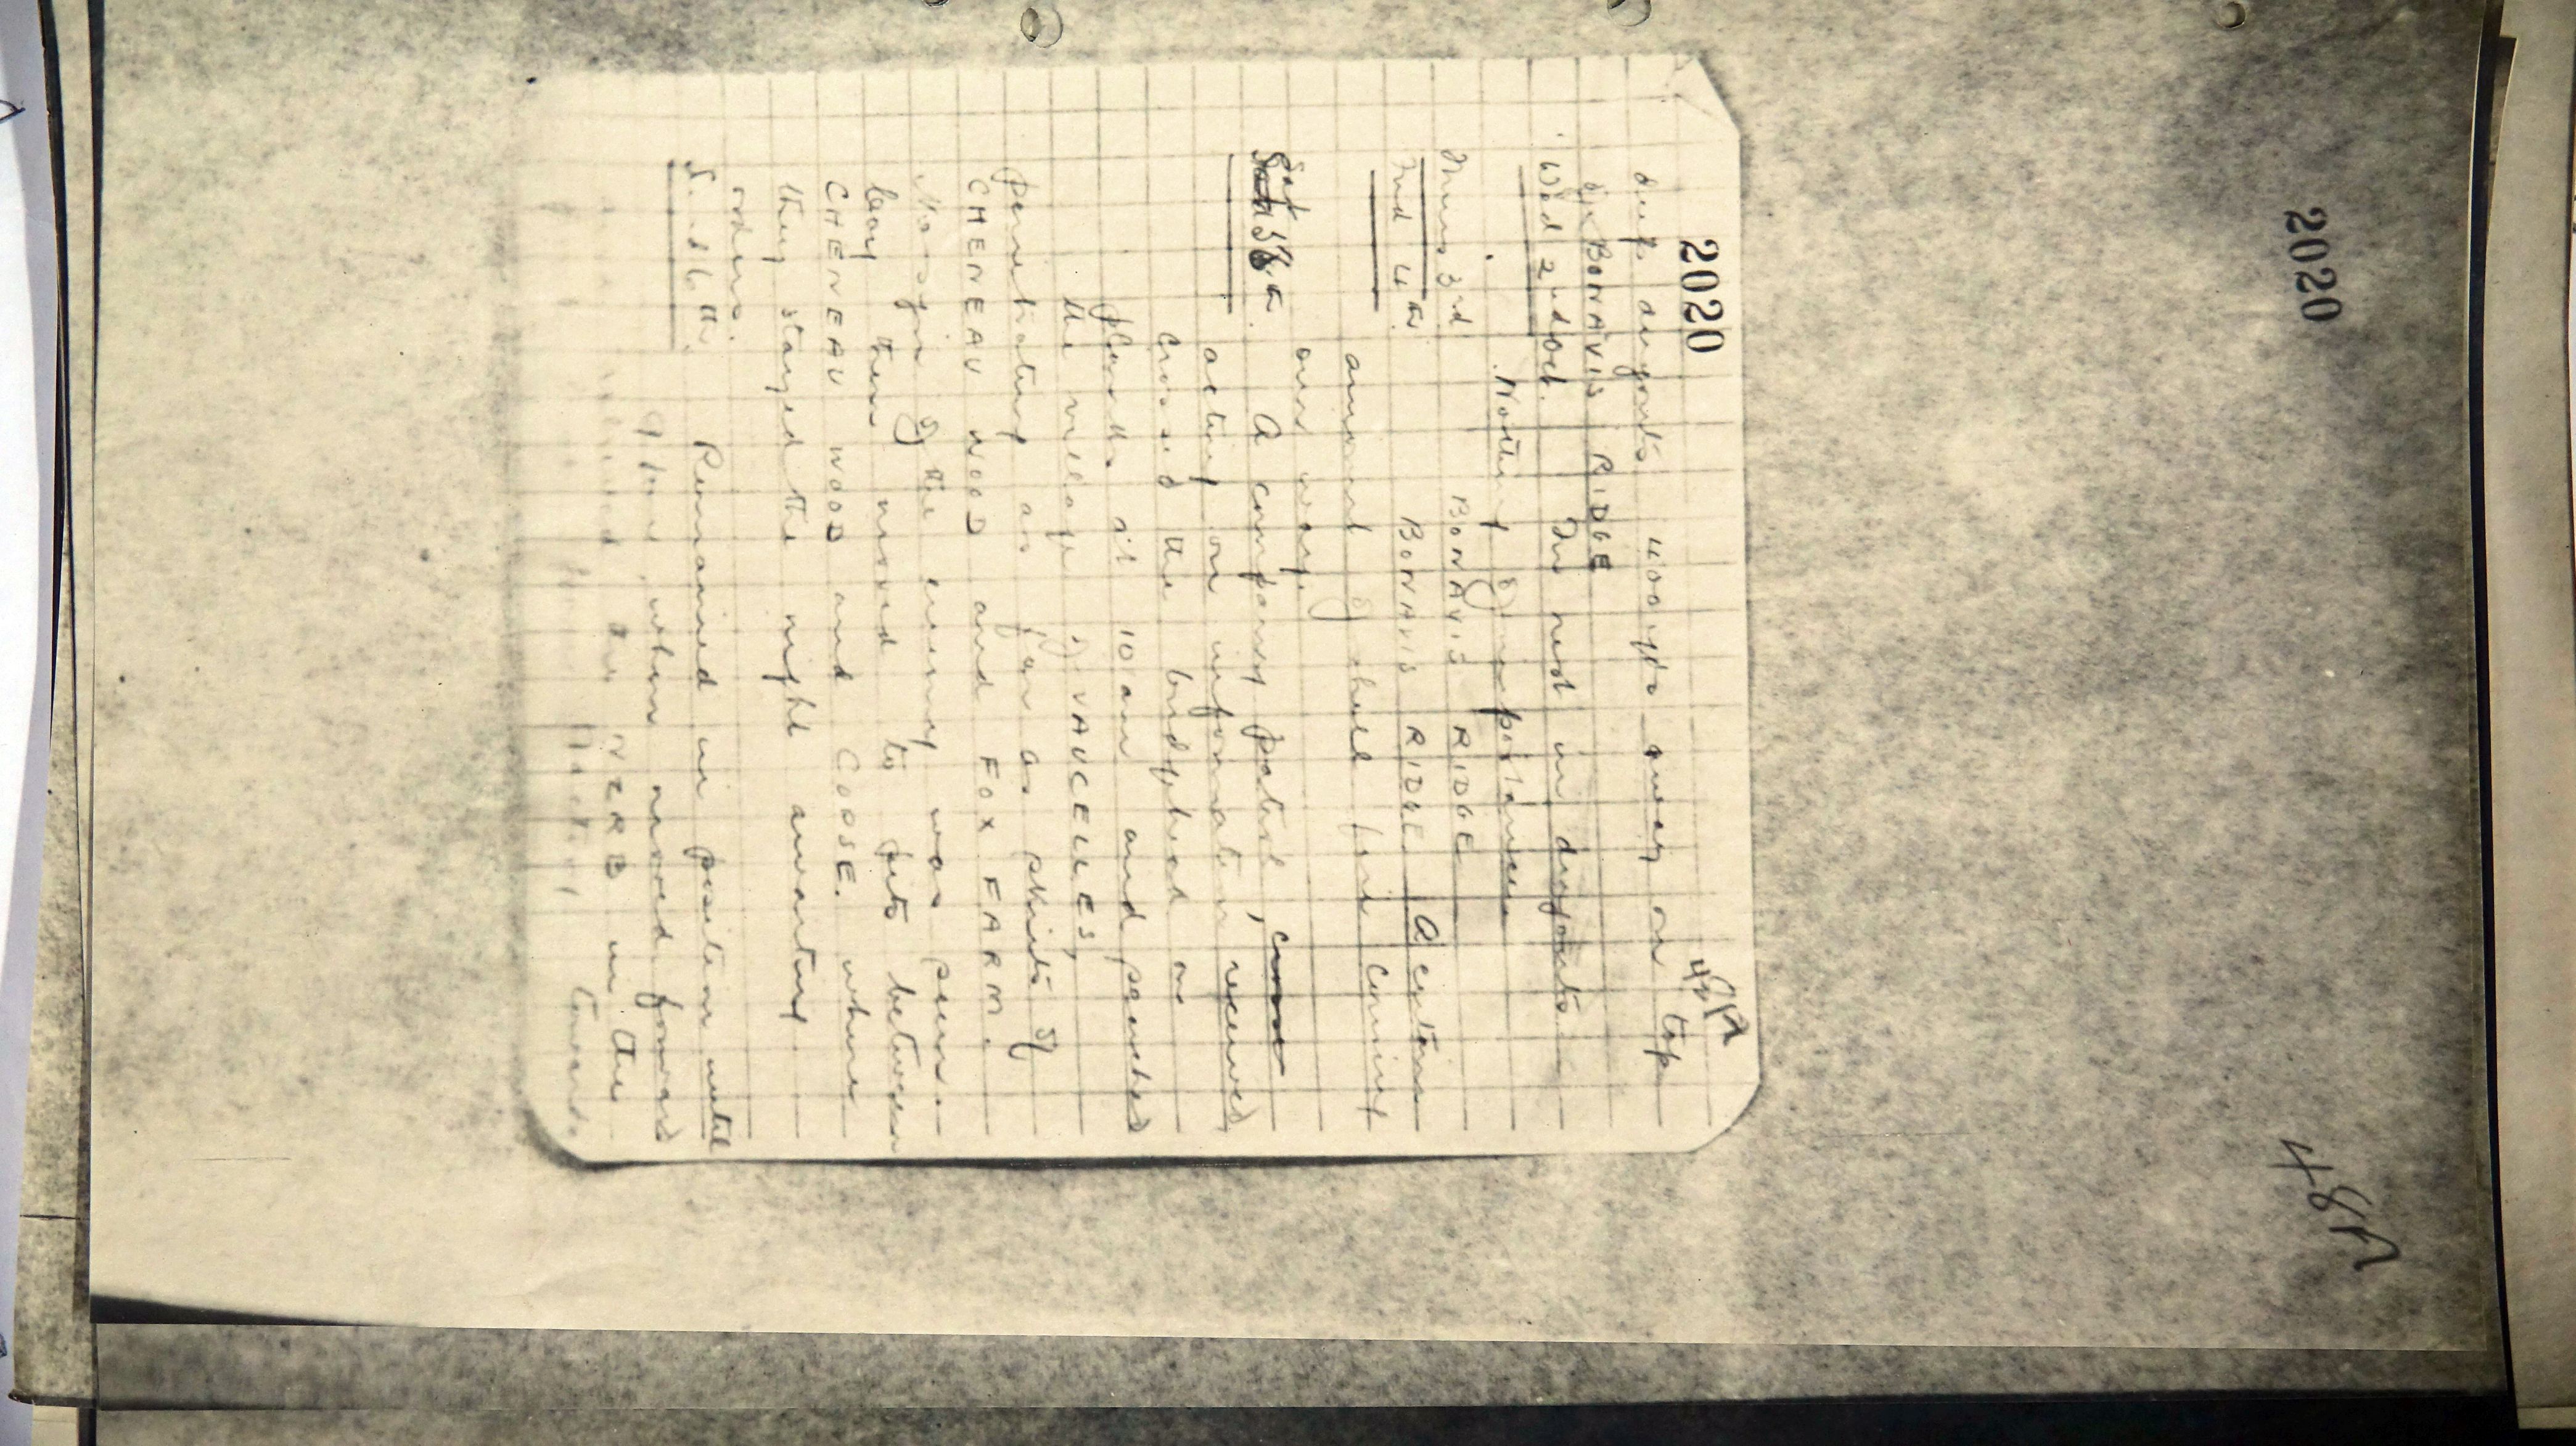 2020
48A
2020
48A
deep dugouts 400 yds away on top
of BONAVIS RIDGE
Wed 2nd Oct. In rest in dugouts
Nothing of importance
Thurs 3rd BONAVIS RIDGE
Frid 4th BONAVIS RIDGE A certain
amount of shell fire coming
our way.
Sat 5th A company patrol,
acting on information received,
crossed the bridgehead on
planks at 10 am and searched
the village of VAUCELLES,
penetrating as far as skirts of
CHENEAU WOOD and FOX FARM.
No sign of the enemy was seen.
Coy then moved to pits between
CHENEAU WOOD and COPSE. where
they stayed the night awaiting
orders.
6th. Remained in position until
when moved forward
in the
towards